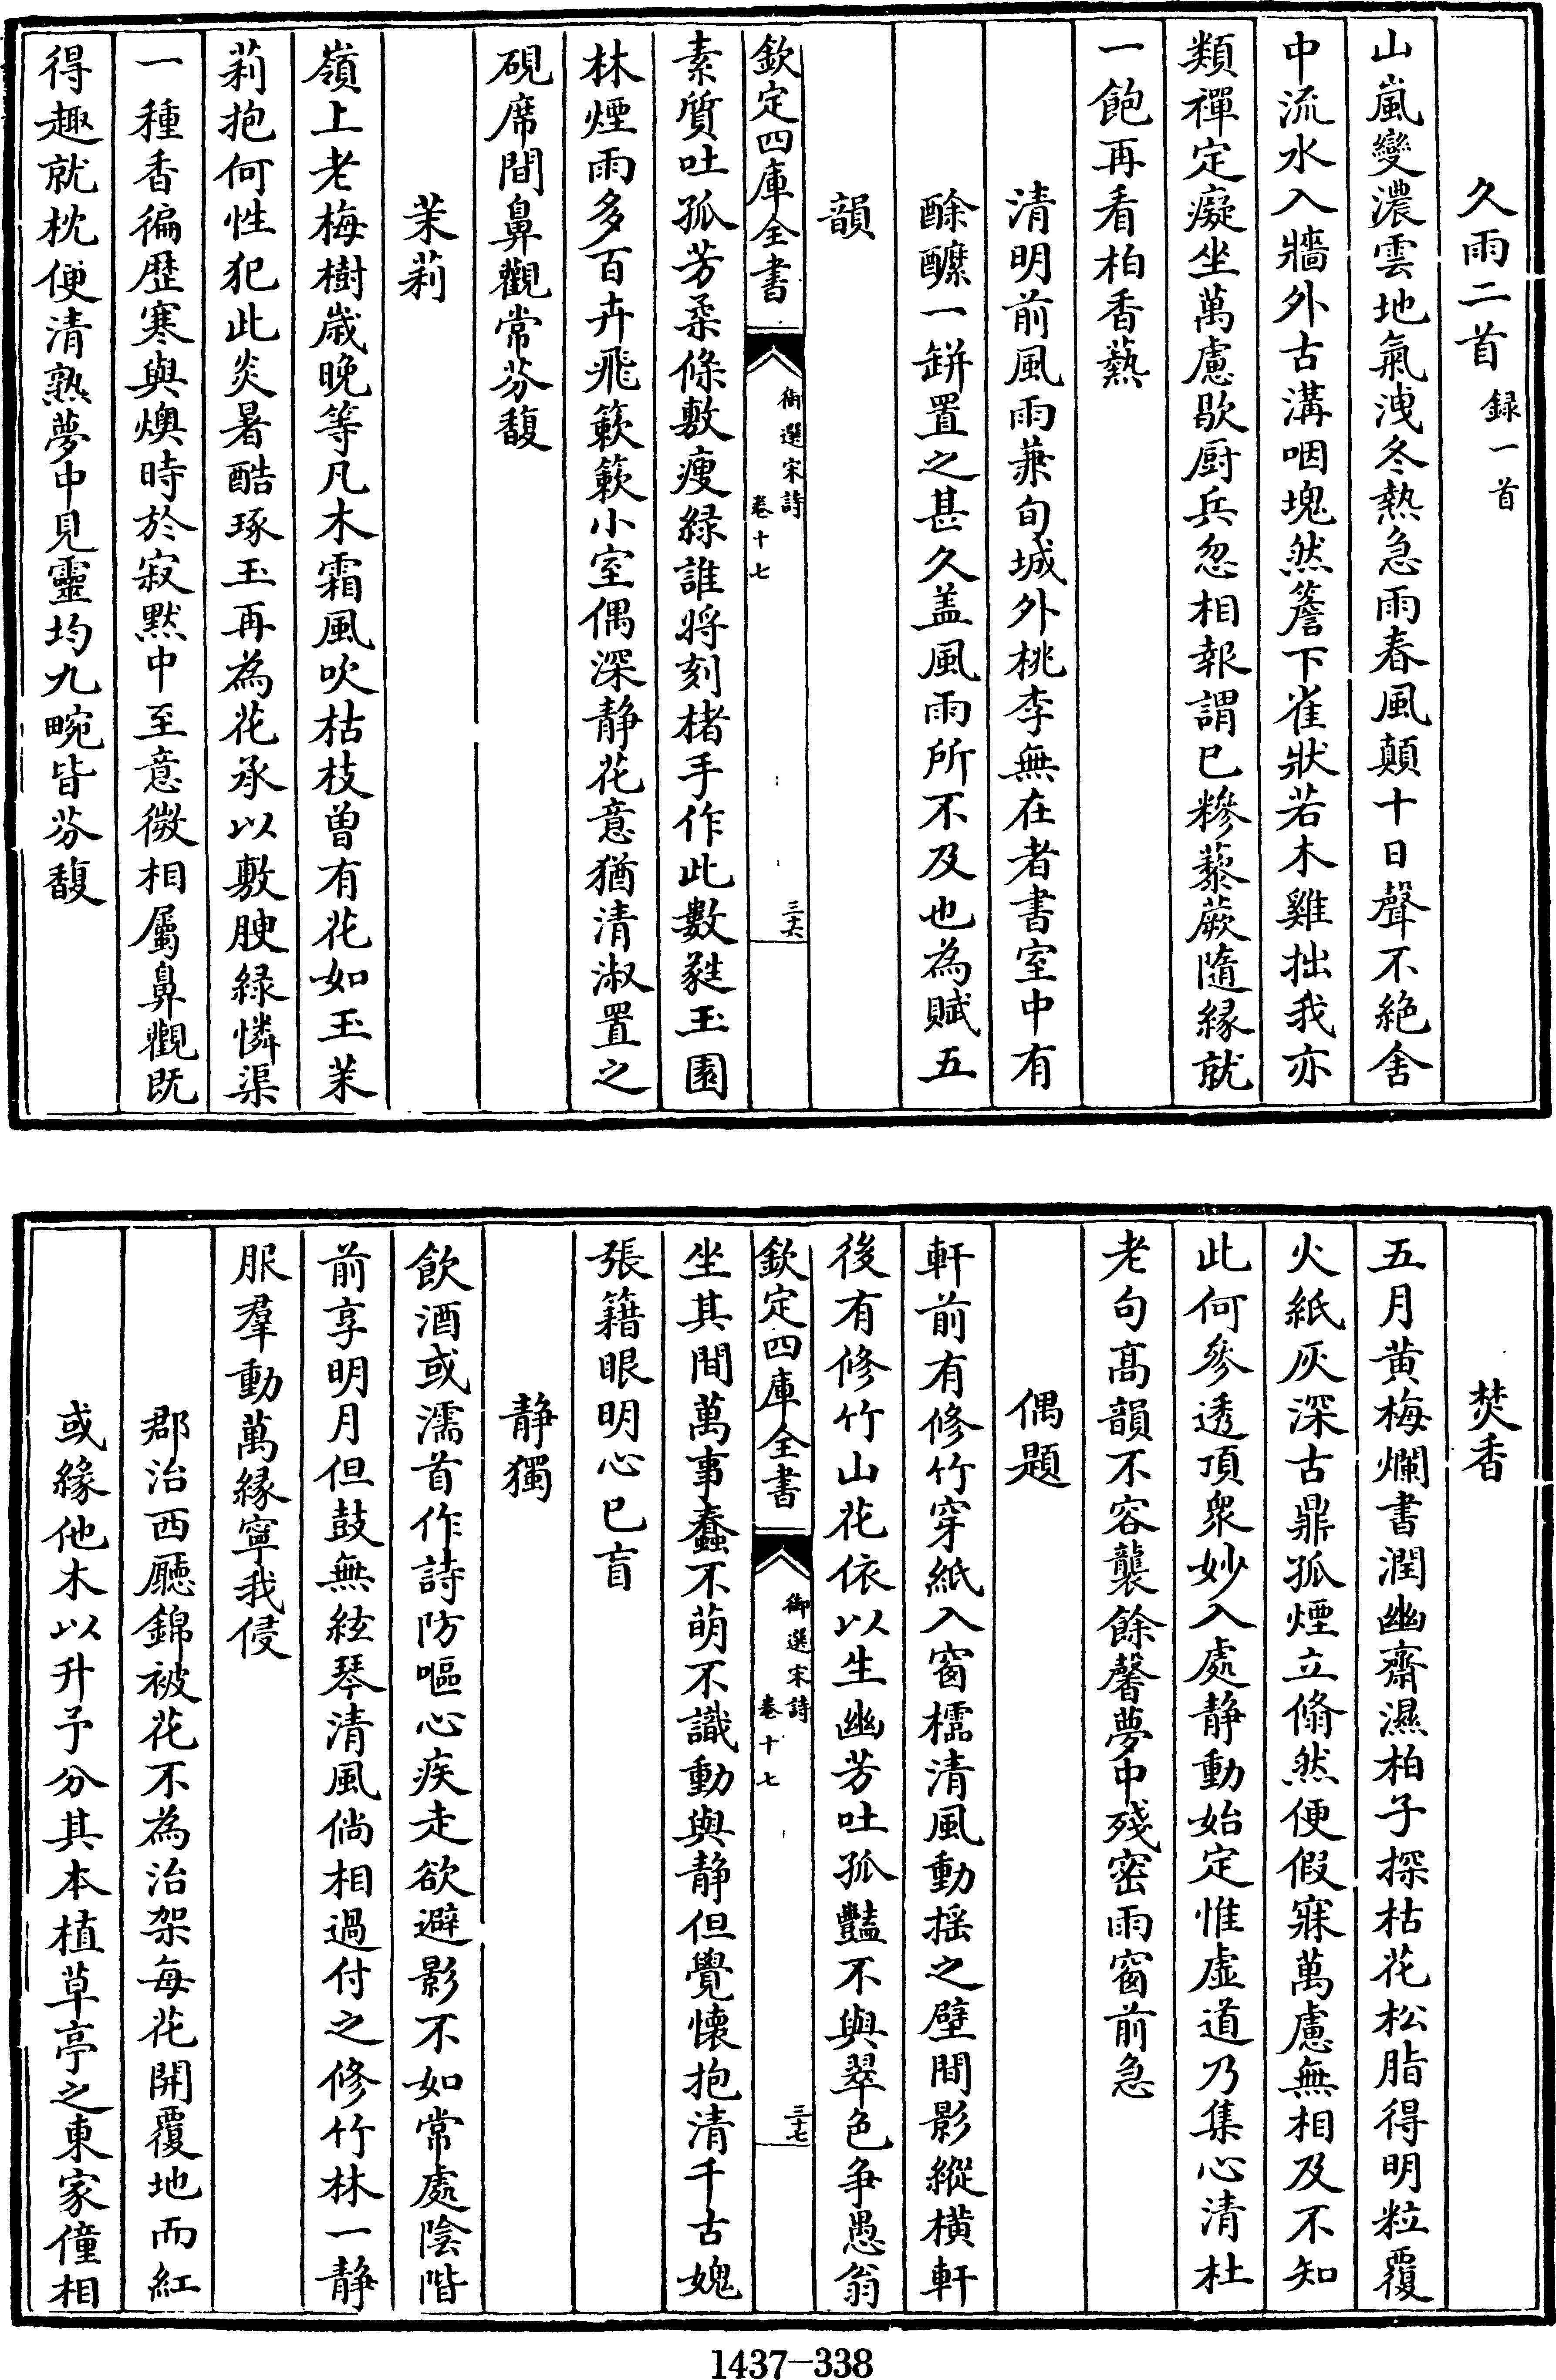 久雨二首 録一首
山嵐變濃雲地氣洩冬熱急雨春風顛十日聲不絶舍
中流水入牆外古溝咽塊然簷下雀狀若木雞拙我亦
類禪定癡坐萬慮歇厨兵忽相報謂已糝藜蕨隨縁就
一飽再看柏香爇
清明前風雨兼旬城外桃李無在者書室中有
酴醾一缾置之甚久盖風雨所不及也為賦五
韻
欽定四庫全書
御選宋詩
卷十七
三十六
素質吐孤芳柔條敷瘦緑誰將刻楮手作此數蕤玉園
林煙雨多百卉飛簌簌小室偶深静花意猶清淑置之
硯席間鼻觀常芬馥
茉莉
嶺上老梅樹歳晩等凡木霜風吹枯枝曽有花如玉茉
莉抱何性犯此炎暑酷琢玉再為花承以敷腴緑憐渠
一種香徧歴寒與燠時於寂黙中至意微相屬鼻觀既
得趣就枕便清熟夢中見靈均九畹皆芬馥
焚香
五月黄梅爛書潤幽齋濕柏子探枯花松脂得明粒覆
火紙灰深古鼎孤煙立翛然便假寐萬慮無相及不知
此何參透頂衆妙入處静動始定惟虚道乃集心清杜
老句髙韻不容襲餘馨夢中殘密雨窗前急
偶題
軒前有修竹穿紙入窗櫺清風動揺之壁間影縱横軒
後有修竹山花依以生幽芳吐孤豔不與翠色争愚翁
欽定四庫全書
御選宋詩
卷十七
三十七
坐其間萬事蠢不萌不識動與静但覺懐抱清千古媿
張籍眼明心已盲
静獨
飲酒或濡首作詩防嘔心疾走欲避影不如常處陰階
前享明月但鼓無絃琴清風倘相過付之修竹林一静
服羣動萬縁寧我侵
郡治西廳錦被花不為治架每花開覆地而紅
或緣他木以升予分其本植草亭之東家僮相
1437—338